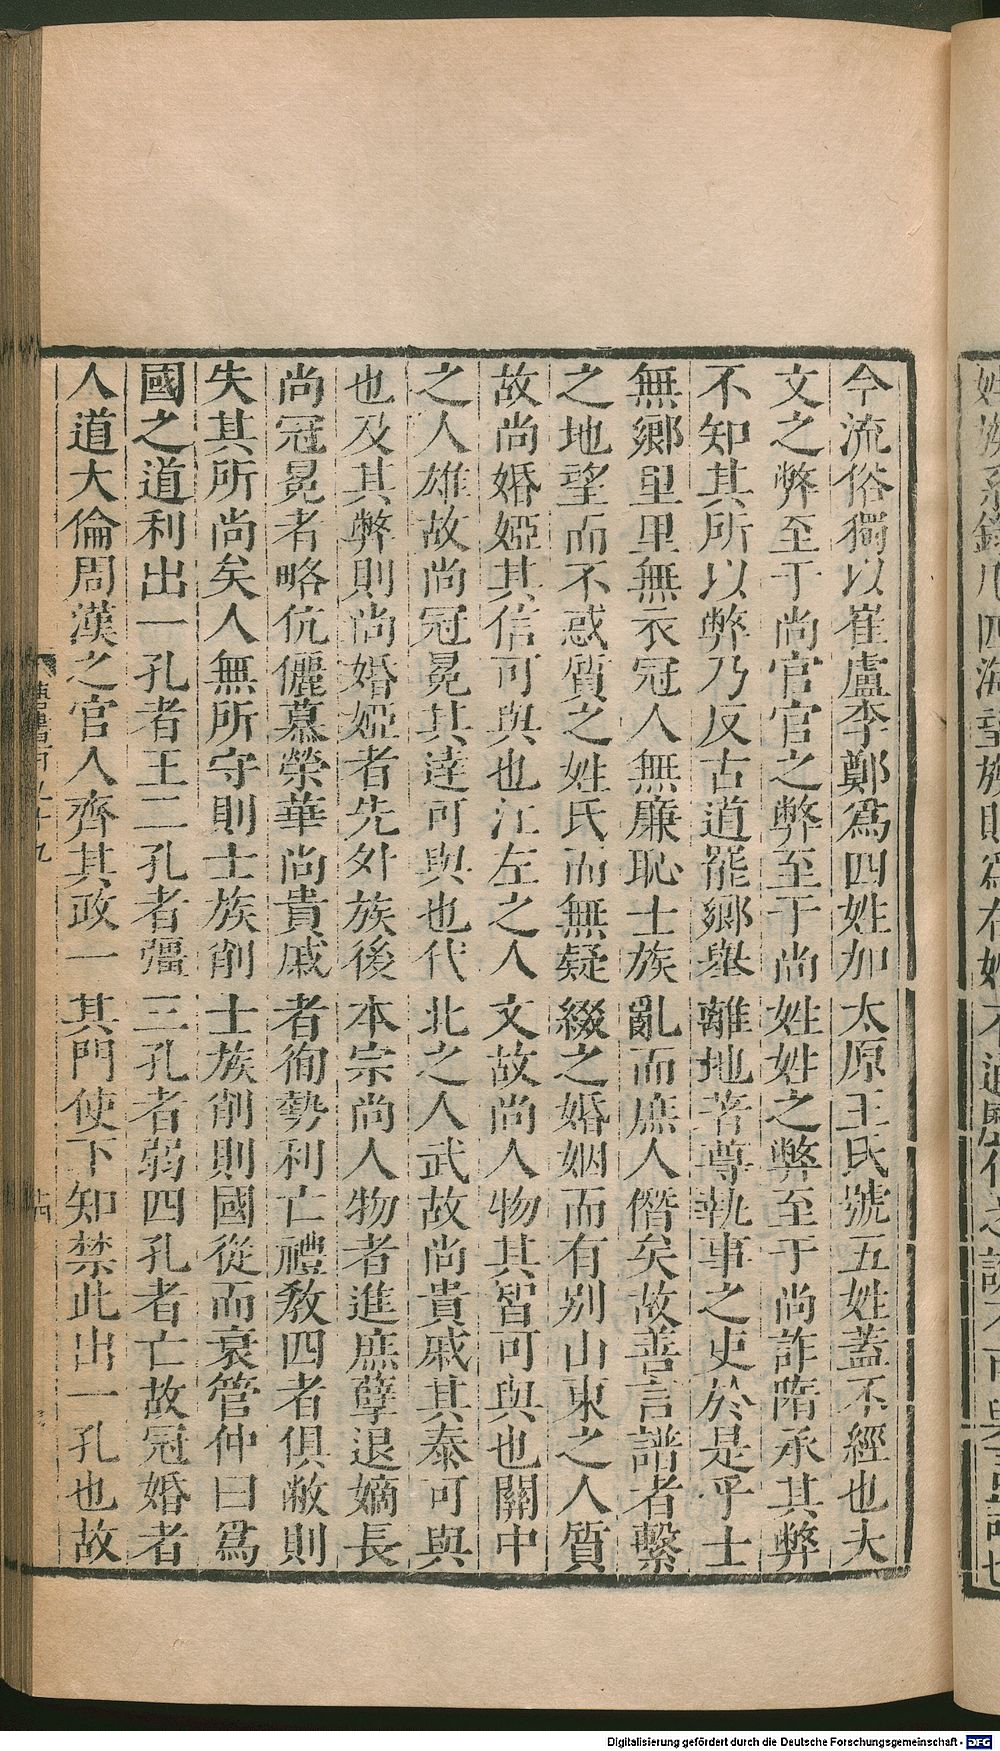 今流俗獨以崔盧李鄭爲四姓加太原王氏號五姓蓋不經也夫
文之弊至于尚官官之弊至于尚姓姓之弊至于尚詐隋承其弊
不知其所以弊乃反古道罷鄉舉離地著尊執事之吏於是乎士
無鄉里里無衣冠人無廉恥士族亂而庶人僭矣故善言譜者繫
之地望而不惑質之姓氏而無疑綴之婚姻而有别山東之人質
故尚婚婭其信可與也江左之人文故尚人物其智可與也關中
之人雄故尚冠冕其達可與也代北之人武故尚貴戚其泰可與
也及其弊則尚婚婭者先外族後本宗尚人物者進庶孽退嫡長
尚冠冕者略伉儷慕榮華尚貴戚者徇勢利亡禮敎四者俱敝則
失其所尚矣人無所守則士族削士族削則國從而衰管仲曰爲
國之道利出一孔者王二孔者彊三孔者弱四孔者亡故冠婚者
人道大倫周漢之官人齊其政一其門使下知禁此出一孔也故
Digitalisierung gefördert durch die Deutsche Forschungsgemeinschaft - DFG